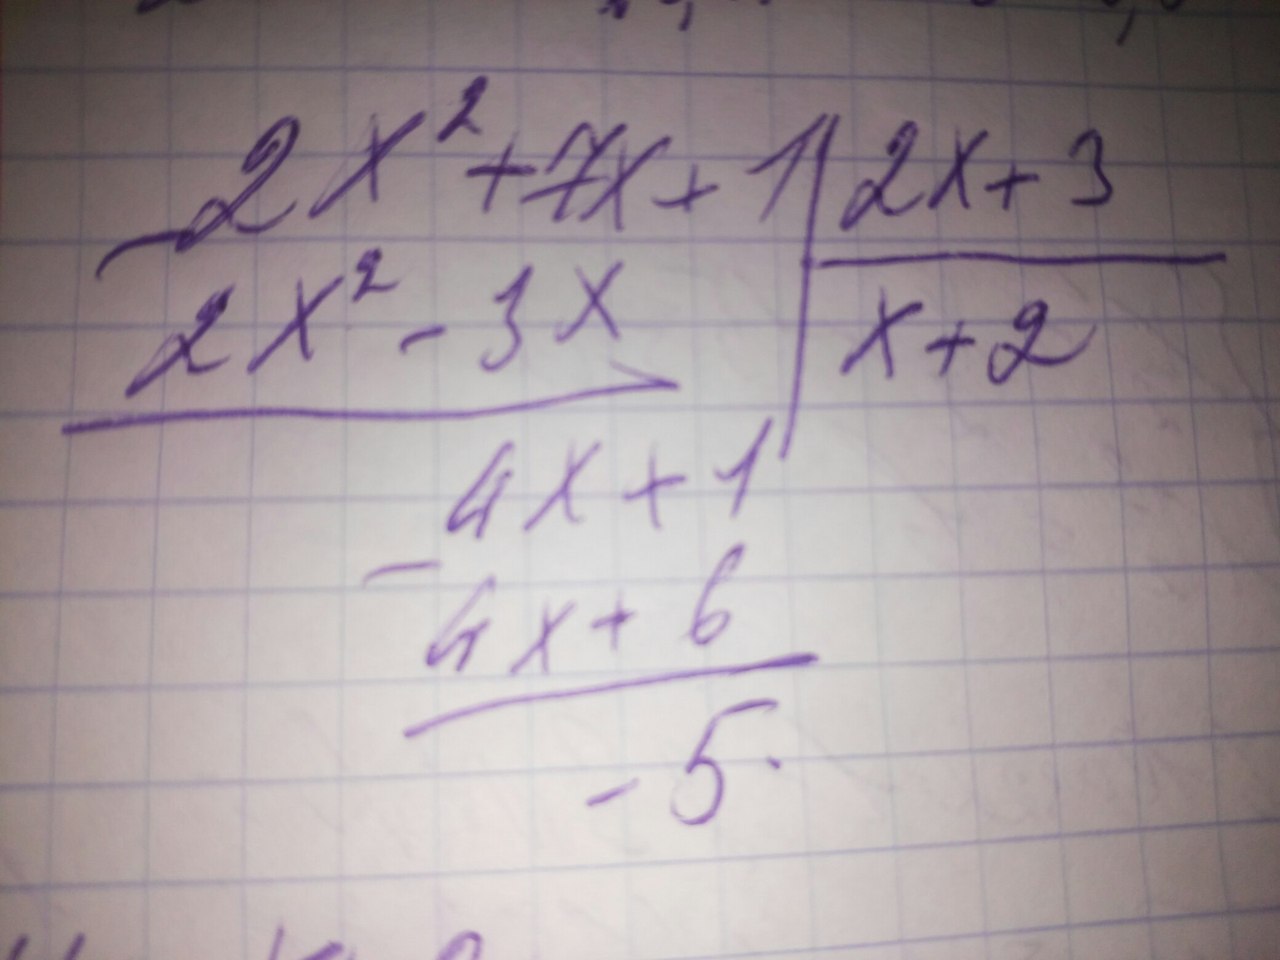 -2x²+7x+1|2x+3
2x²-3x x+2
4x+1
-
4x+6
-5.